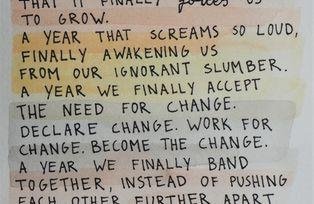 THAT IT FINALLY forces US
TO GROW.
A YEAR THAT SCREAMS SO LOUD,
FINALLY AWAKENING US
FROM OUR IGNORANT SLUMBER.
A YEAR WE FINALLY ACCEPT
THE NEED FOR CHANGE.
DECLARE CHANGE. WORK FOR
CHANGE. BECOME THE CHANGE.
A YEAR WE FINALLY BAND
TOGETHER, INSTEAD OF PUSHING
EACH OTHER FURTHER APART